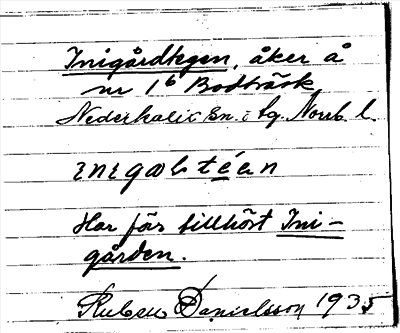 Inigårdtegen, åker å
nr 1⁶ Bodträsk
Nederkalix sn. o. tg. Norrb. l.
inigαƚtéεn
Har förs tillhört Ini-
gården.
Ruben Danielsson 1935